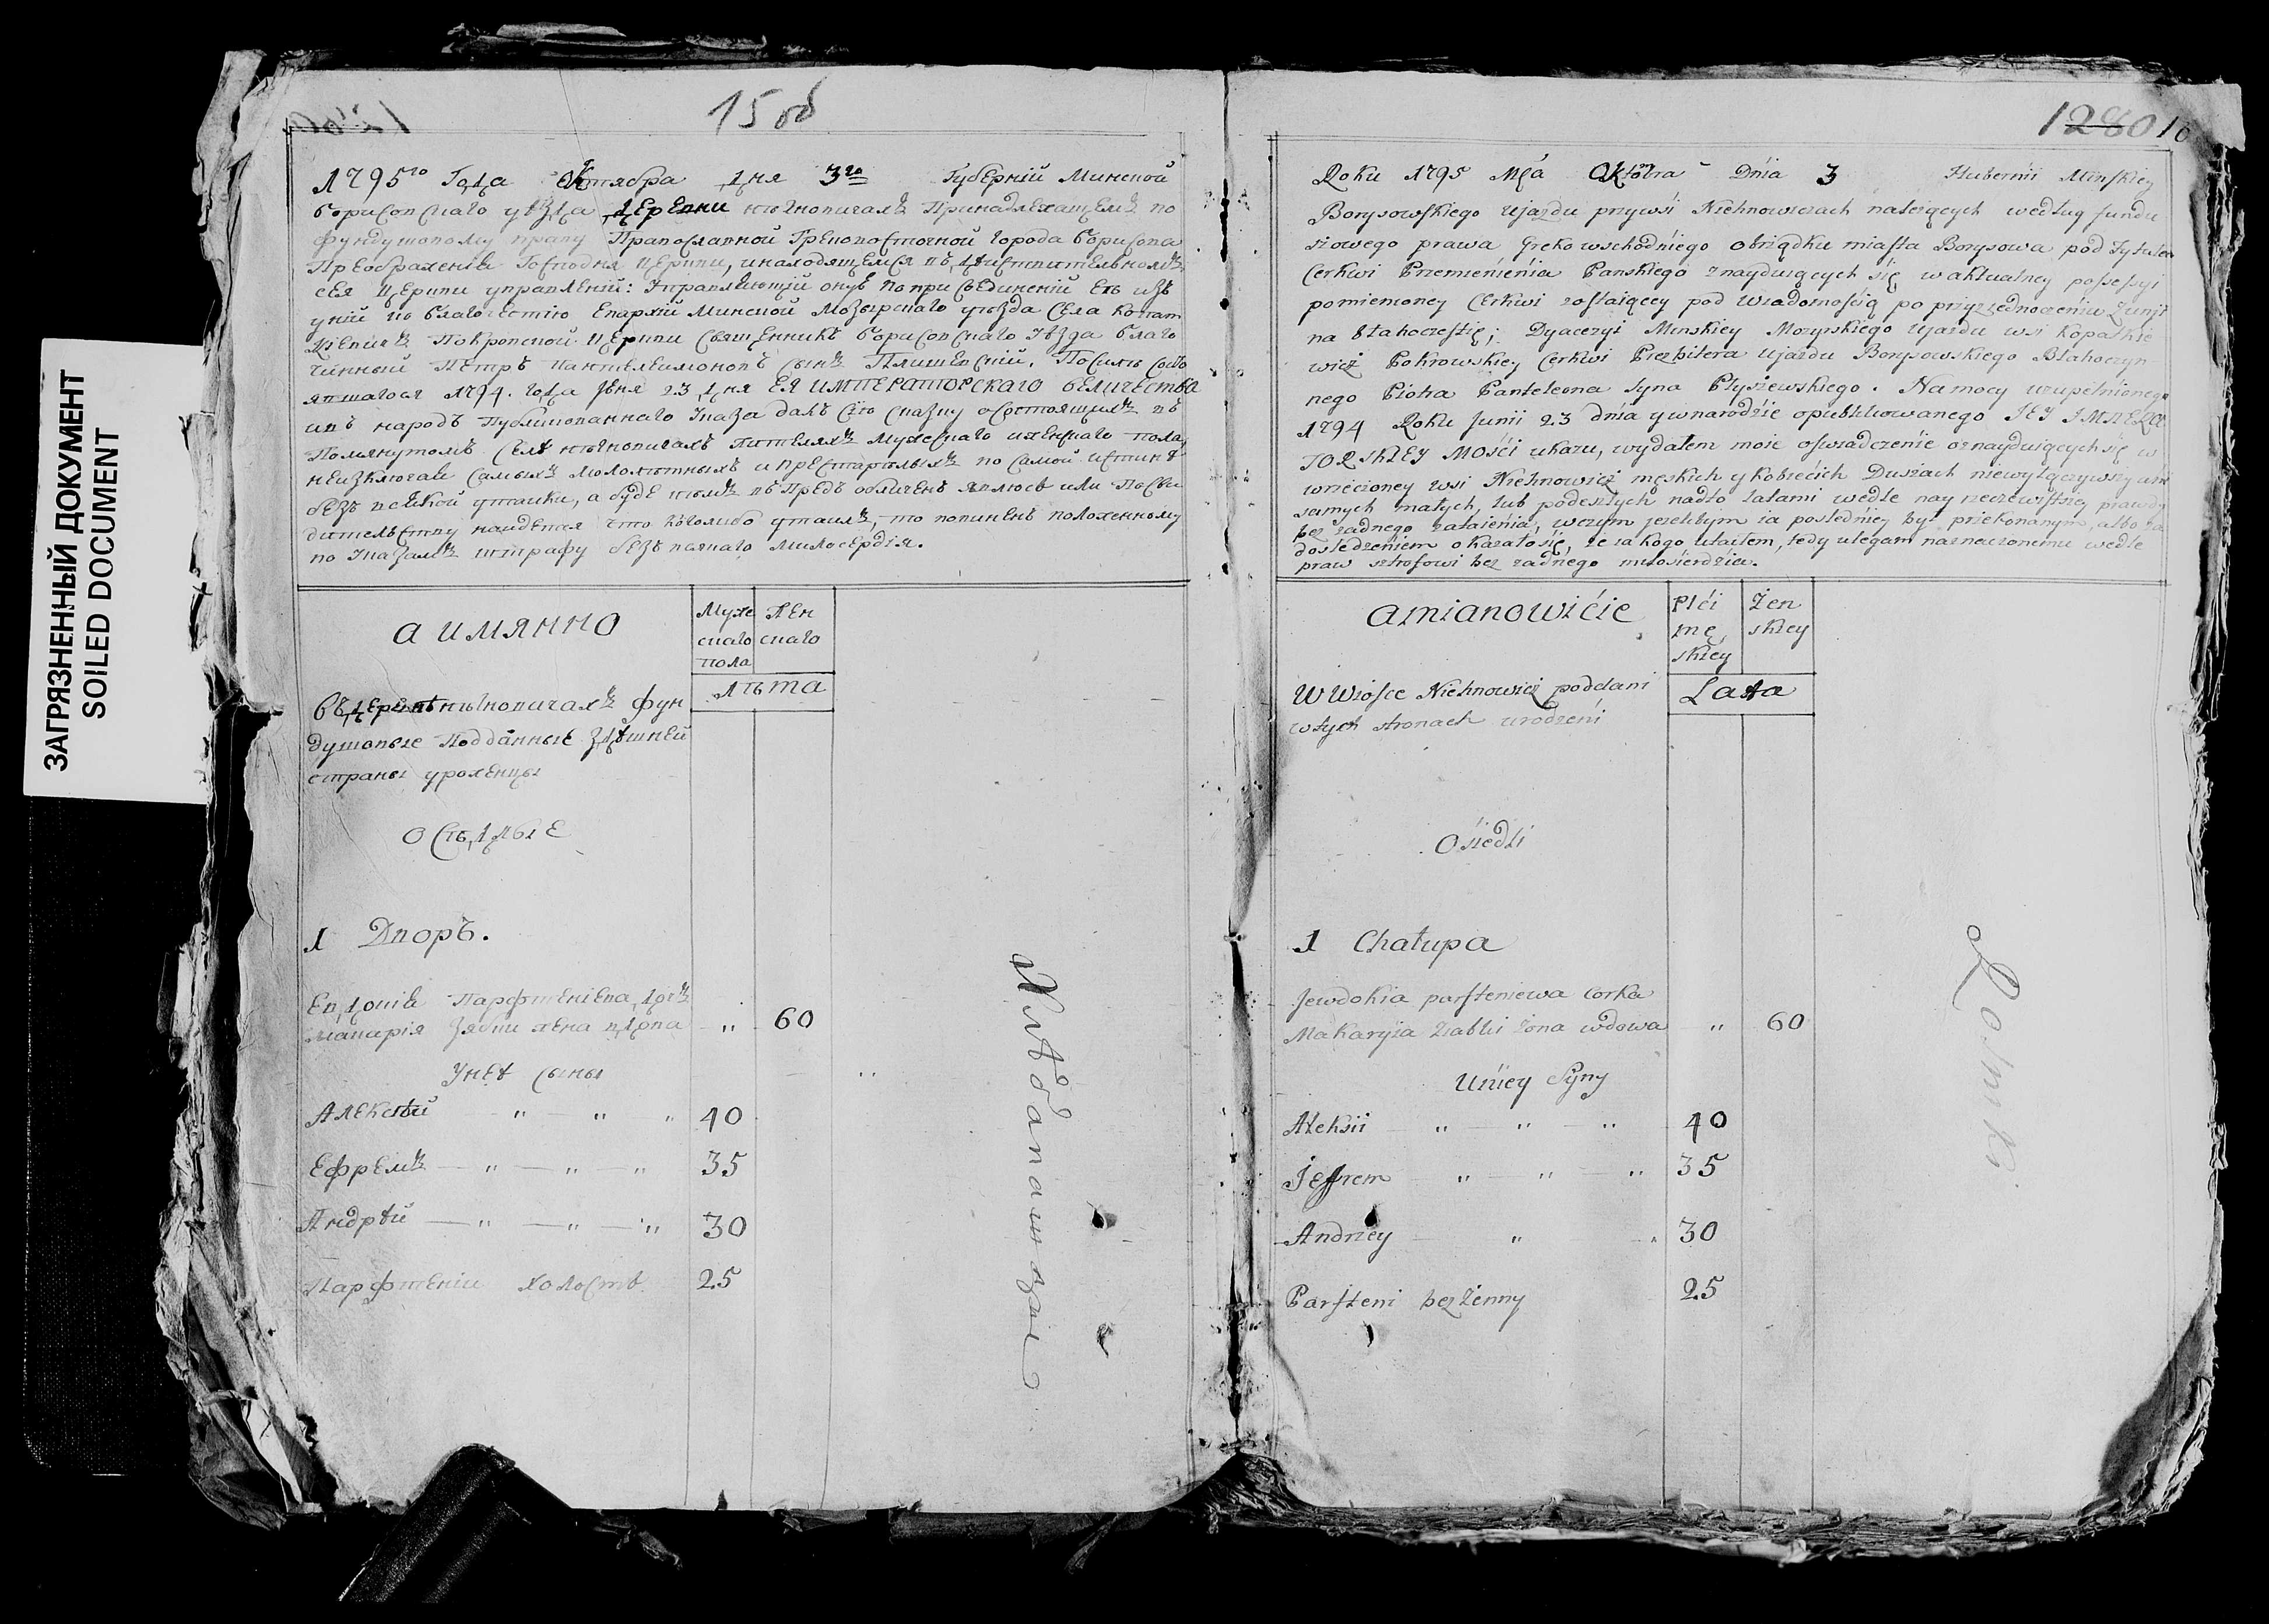 ЗАГРЯЗНЕННЫЙ ДОКУМЕНТ
SOILED DOCUMENT
15 об
1795го Года Октября дня 3го Губерніи Минской
Борисовскаго уѣзда деревни Нѣхновичахъ Принадлежащемъ по
фундушовому праву Православной Грековосточной города Борисова
Преображенія Господня церкви, инаходящемся въ дѣйствительномъ
сея Церкви управленіи: Управляющій онуѣ по присъединеніи еѣ изъ
уніи ко благочестію Епархіи Минской Мозырскаго уѣзда Села Копат
Кѣвичъ Покровской Церкви Священникъ Борисовскаго Уѣзда благо
чинный Петръ Пантелеимоновъ сынъ Плишевскій. Посилѣ состо
явшагося 1794. года Іюня 23 дня ЕЯ ИМПЕРАТОРСКАГО ВЕЛИЧЕСТВА
ивъ народъ Публикованнаго Указа далъ сію сказку осостоящихъ въ
Помянутомъ Селѣ Нѣхновичахъ жителяхъ мужескаго иженскаго пола,
неизключая самыхъ мололѣтныхъ и престарѣлыхъ по самой истинѣ
безъ всякой утайки, а буде кѣмъ въ Предъ обличенъ явлюсь или По сви
дительству найдется что кого либо утаилъ, то повиненъ положенному
по Указамъ штрафу безъ всякаго милосердія.
а имянно
Муже
скаго
пола
Жен
скаго
лѣта
Въ деревнѣ Нѣхновичахъ фун
душовые Подданные здѣшней
страны уроженцы
осѣдлые
1 Дворъ.
Евдокія Парфтеніева дочь
Макарія Зябки жена вдова " 60
Унеѣ сыны
Алексѣй " " " 40
Ефремъ " " " 35
Андрѣй " " " 30
Парфтеніи холостъ 25
1280 16
Roku 1795 Mca Oktobra Dnia 3 Hubernii Minskiey
Borysowskiego Ujazdu przywsi Niehnowiczach należących według fundu
szowego prawa Greko wschodniego obrządku miasta Borysowa pod Tytułem
Cerkwi Przemienienia Panskiego znayduiących się, w aktualney possessyi
pomienioney Cerkwi zostaiącey pod wiadomością po przyzjednoczeniu z unii
na błahoczestię; Dyacezyi Minskiey Mozyrskiego Ujazdu wsi Kopatkie
wicz Pokrowskiey Cerkwi Prezbitera Ujazdu Borysowskiego Błahoczyn
nego Piotra Panteleona syna Plyszewskiego. Na mocy uzupełnionego
1794 Roku Junii 23 dnia y wnarodzie opublikowanego JEY IMPERA
TORSKIEY Mości ukazu, wydałem moie oswiadczenie oznayduiących się w
wrzeczoney wsi Niehnowicz męskich y kobiecich Duszach niewyłączywszy ani
samych małych, lub podeszłych nadto latami wedle nayrzeczewistzey prawdy
bez żadnego zataienia, wczym jeżelibym ia posledniey był przekonanym, albo za
dośledzeniem okazałosię, że iakogo utaiłem, tedy ulegam naznaczonemu wedle
praw sztrofowi bez żadnego miłosierdzia.
amianowićie
Płci
mę
skiey
Żen
skiey
Lata
W Wiosce Niehnowicz poddani
wtych stronach urodzeni
Osiedli
1 Chałupa
Jewdokia parfteniewa corka
Makaryia Ziabki żona wdowa " 60
Uniey Syny
Aleksii " " " 40
Jeffrem " " " 35
Andrzey " " 30
Parfteni bezżenny 25